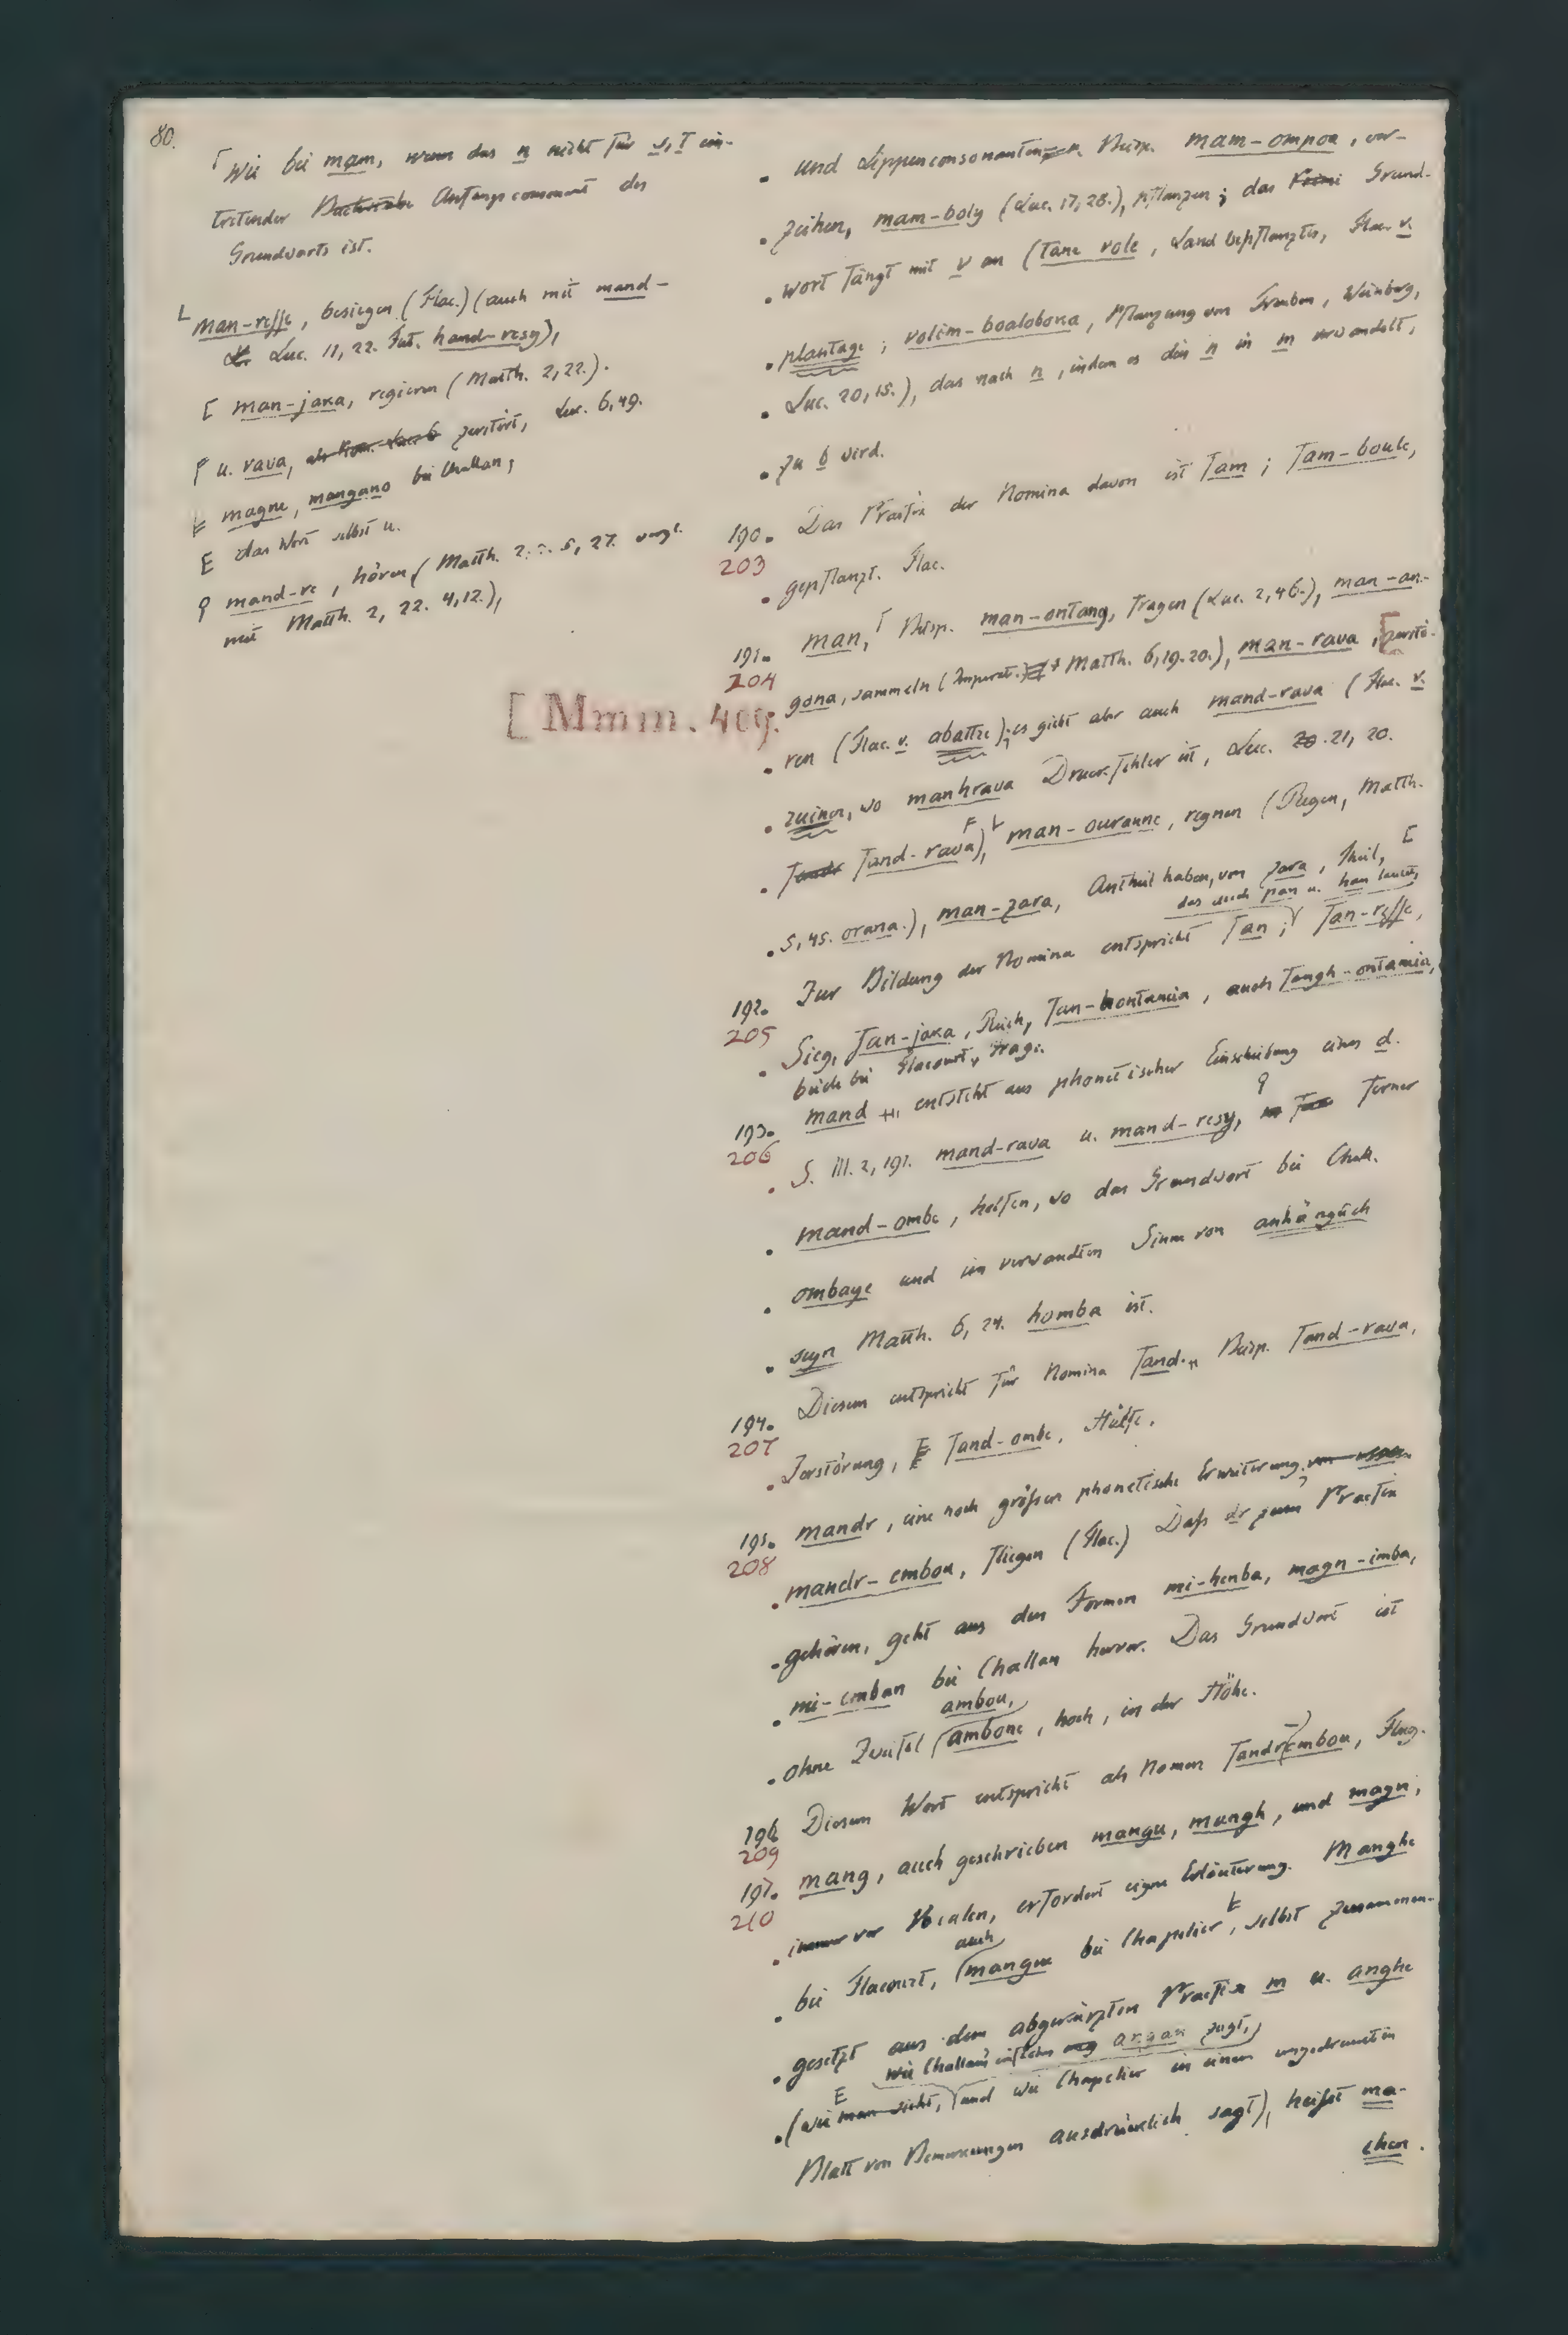 80.
⌈ Wie bei mam, wenn das n nicht für s, t ein-
tretender Buchstabe Anfangsconsonant des
Grundworts ist.
L man-resse, besiegen (Flac.) (auch mit mand-
Luc. 11, 22. Fut. hand-resy),
[ man-jaka, regieren (Matth. 2,22.).
F u. rava, zerstört, Luc. 6,49.
magne, mangano bei Challan,
E das Wort selbst u.
9 mand-re, hören (Matth. 5, 27. vergl.
mit Matth. 2, 22. 4,12.),
[ Mmm. 409.
und Lippenconsonanten. Beisp. mam-ompoa, ver-
zeihen, mam-boly (Luc. 17,28.), pflanzen; das Grund-
wort fängt mit v an (tane vole, Land bepflanztes, Flac. v.
plantage; volem-boaloboka, Pflanzung von Trauben, Weinberg,
Luc. 20,15.), das nach n, indem es den n in m verwandelt,
zu b wird.
190. Das Praefix der Nomina davon ist tam; tam-boule,
203
gepflanzt. Flac.
191. man, ⌈ Beisp. man-ontang, fragen (Luc. 2,46.), man-an-
204
gona, sammeln (Imperat. Matth. 6,19.20.), man-rava, [zerstö-
ren (Flac. v. abattre); es giebt aber auch mand-rava (Flac. v.
ruiner, wo manhrava Druckfehler ist, Luc. 20. 21, 20.
tand-rava), F L man-ouranne, regnen (Regen, Matth.
5,45. orana.), man-zara, Antheil haben, von zara, Theil, [
das auch pan u. han lautet,
192. Zur Bildung der Nomina entspricht tan; tan-resse,
205
Sieg, tan-jaka, Reich, tan-hontancia, auch tangh-ontancia,
beide bei Flacourt, Frage.
193. mand entsteht aus phonetischer Einschiebung eines d.
206
S. III. 2, 191. mand-rava u. mand-resy, 9 ferner
mand-ombe, helfen, wo das Grundwort bei Chall.
ombaye und im verwandten Sinne von anhänglich
seyn Matth. 6, 24. homba ist.
194. Diesem entspricht für Nomina tand. Beisp. tand-rava,
207
Zerstörung, tand-ombe, Hülfe.
195. mandr, eine noch größere phonetische Erweiterung,
208
mandr-embou, fliegen (Flac.) Daß dr zum Praefix
gehören, geht aus den Formen mi-henba, magn-imba,
mi-emban bei Challan hervor. Das Grundwort ist
ambou,
ohne Zweifel ambone, hoch, in der Höhe.
196 Diesem Wort entspricht als Nomen tandrembou, Flug.
209
197. mang, auch geschrieben mangu, mangh, und magn,
210
immer vor Vocalen, erfordert eigne Erläuterung. Manghe
auch
bei Flacourt, mangue bei Chapelier, selbst zusammen-
gesetzt aus dem abgekürzten Praefix m u. anghe
wie Challan angan sagt,
(wie man sieht, und wie Chapelier in einem ungedruckten
Blatt von Bemerkungen ausdrücklich sagt), heißt ma-
chen.